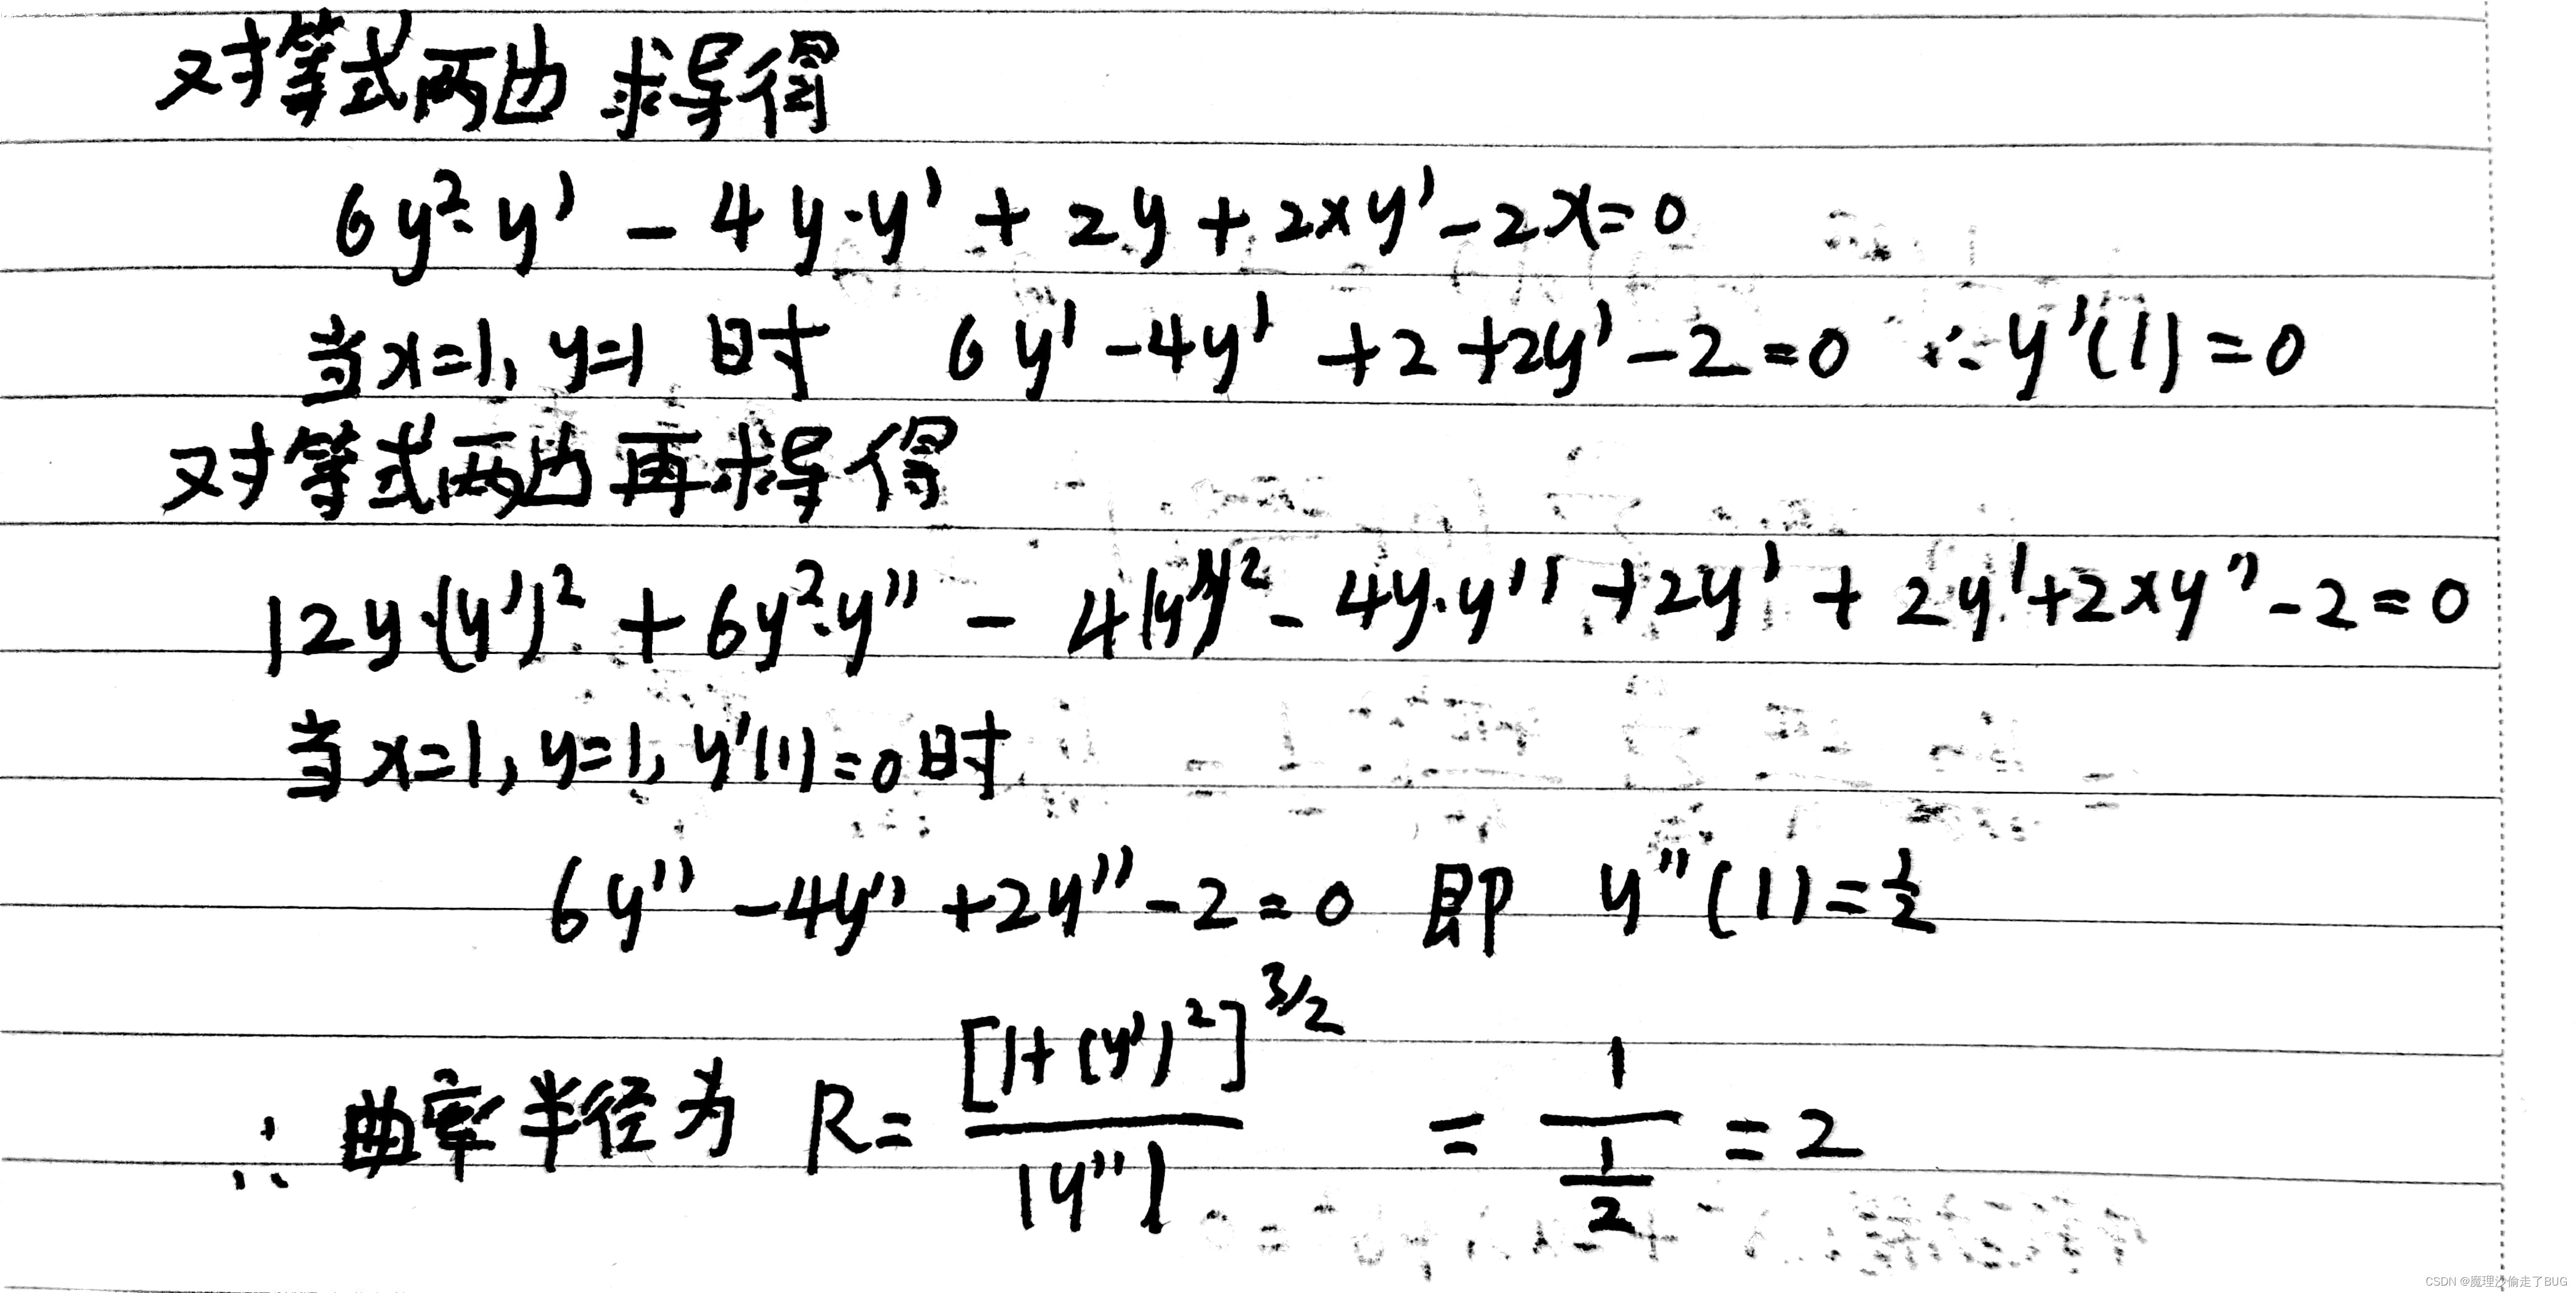 对等式两边 求导得
6y²·y' - 4y·y' + 2y + 2xy' - 2x = 0
当x=1, y=1 时 6y' - 4y' + 2 + 2y' - 2 = 0 ∴ y'(1) = 0
对等式两边再求导得
12y·(y')² + 6y²·y'' - 4(y')² - 4y·y'' + 2y' + 2y' + 2xy'' - 2 = 0
当 x=1, y=1, y'(1)=0时
6y'' - 4y'' + 2y'' - 2 = 0 即 y''(1) = 1/2
∴ 曲率半径为 R = [1+(y')²]^{3/2} / |y''| = 1 / (1/2) = 2
CSDN @魔理沙偷走了BUG